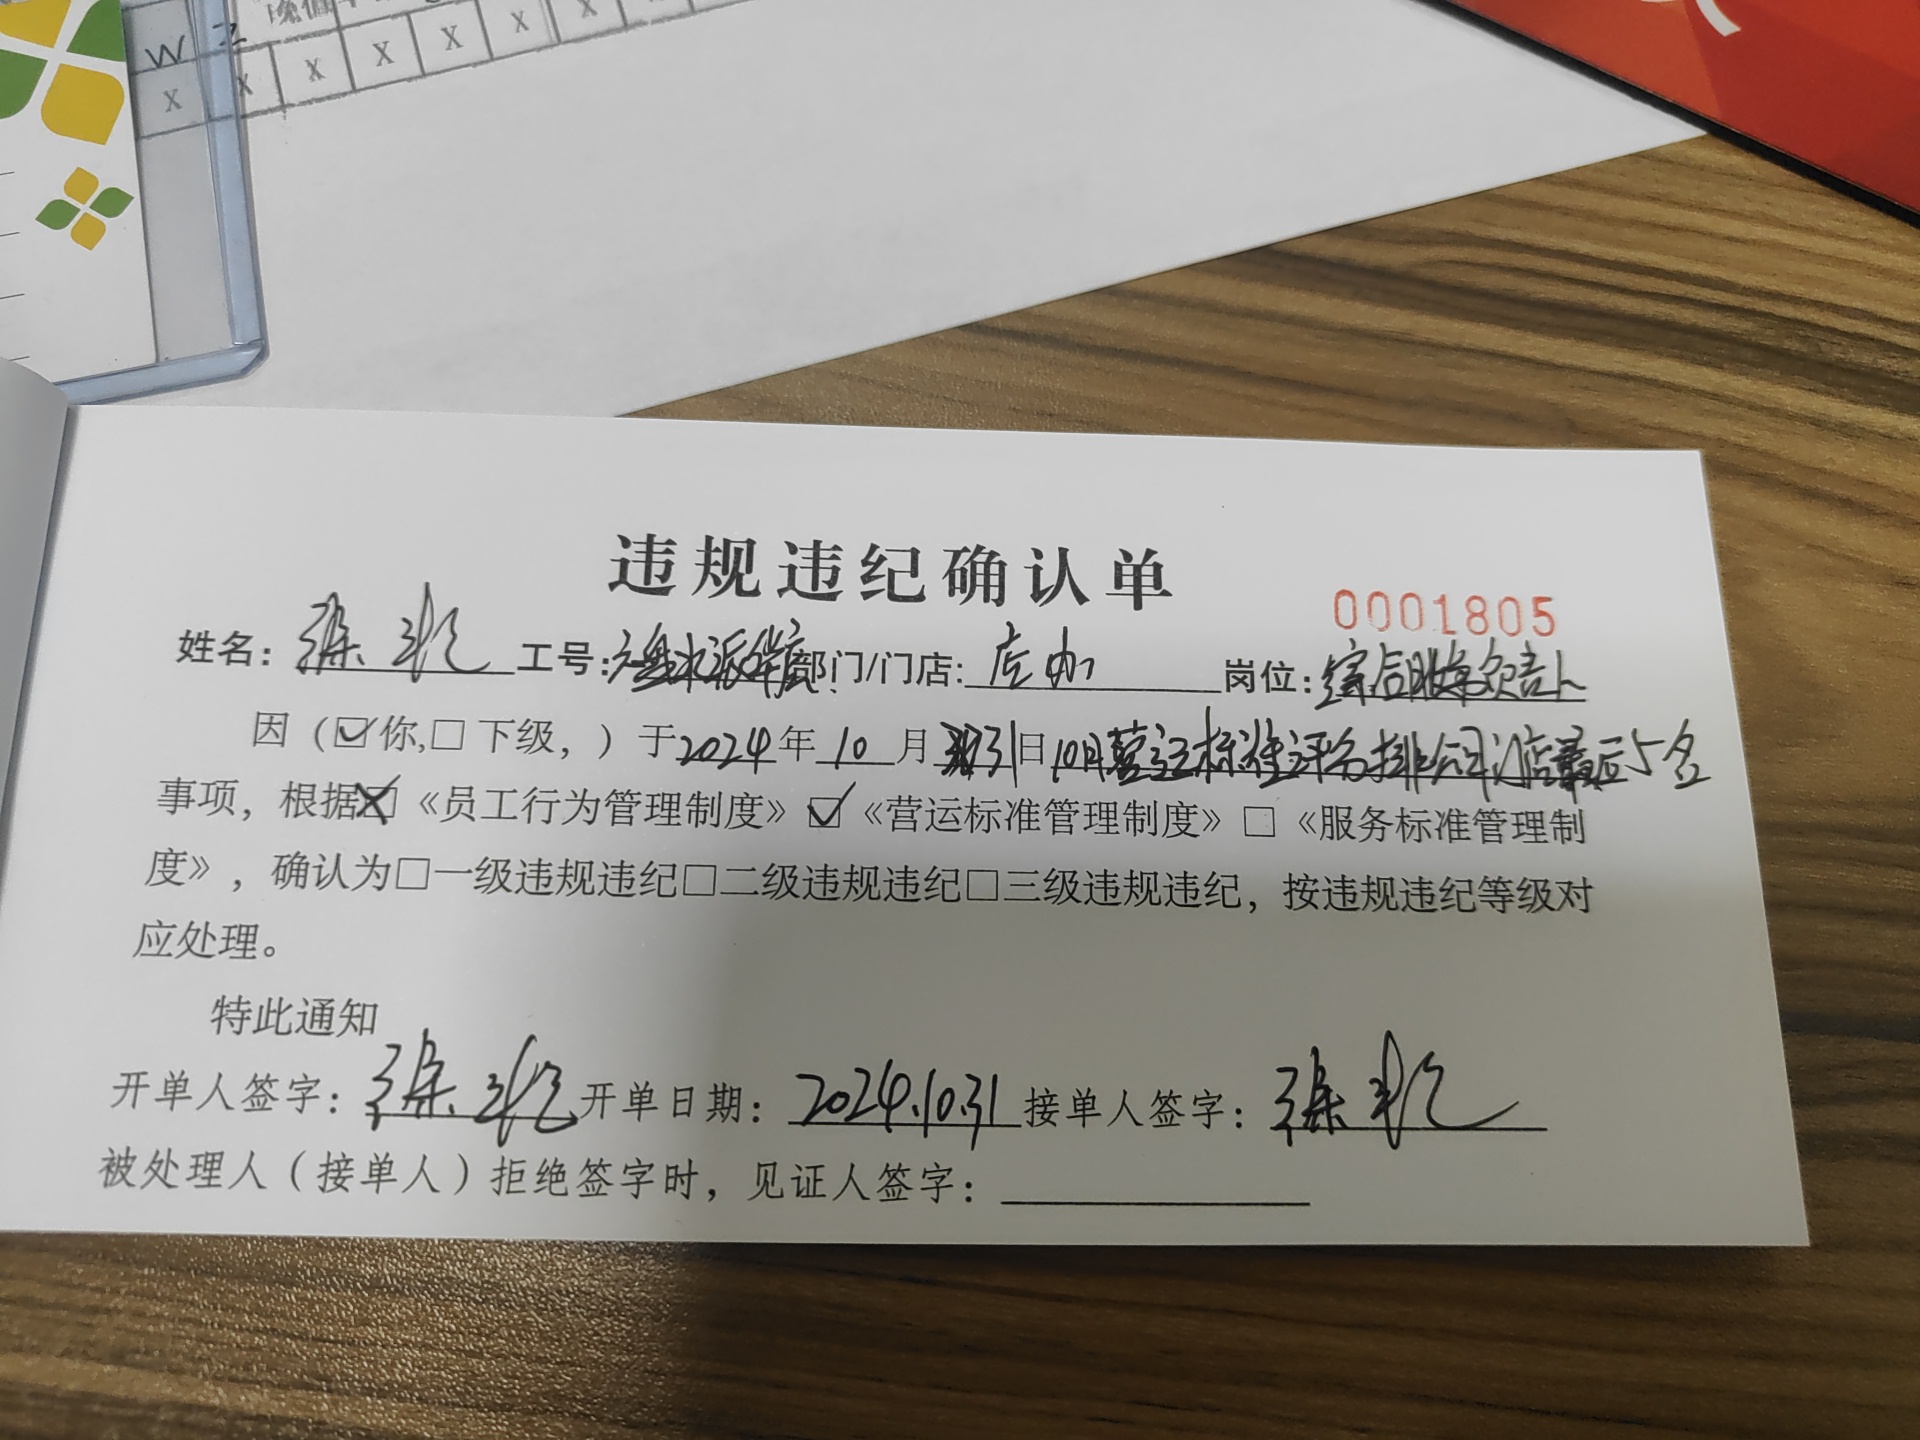 W
X X X X X X
违规违纪确认单
0001805
姓名: 工号: 部门/门店: 店办 岗位: 综合收银负责人
因(☑你,□下级,)于2024年10月31日10月营运标准评分排公司门店最后5名
事项,根据☒《员工行为管理制度》☑《营运标准管理制度》□《服务标准管理制
度》,确认为□一级违规违纪□二级违规违纪□三级违规违纪,按违规违纪等级对
应处理。
特此通知
开单人签字: 开单日期: 2024.10.31 接单人签字:
被处理人(接单人)拒绝签字时,见证人签字: